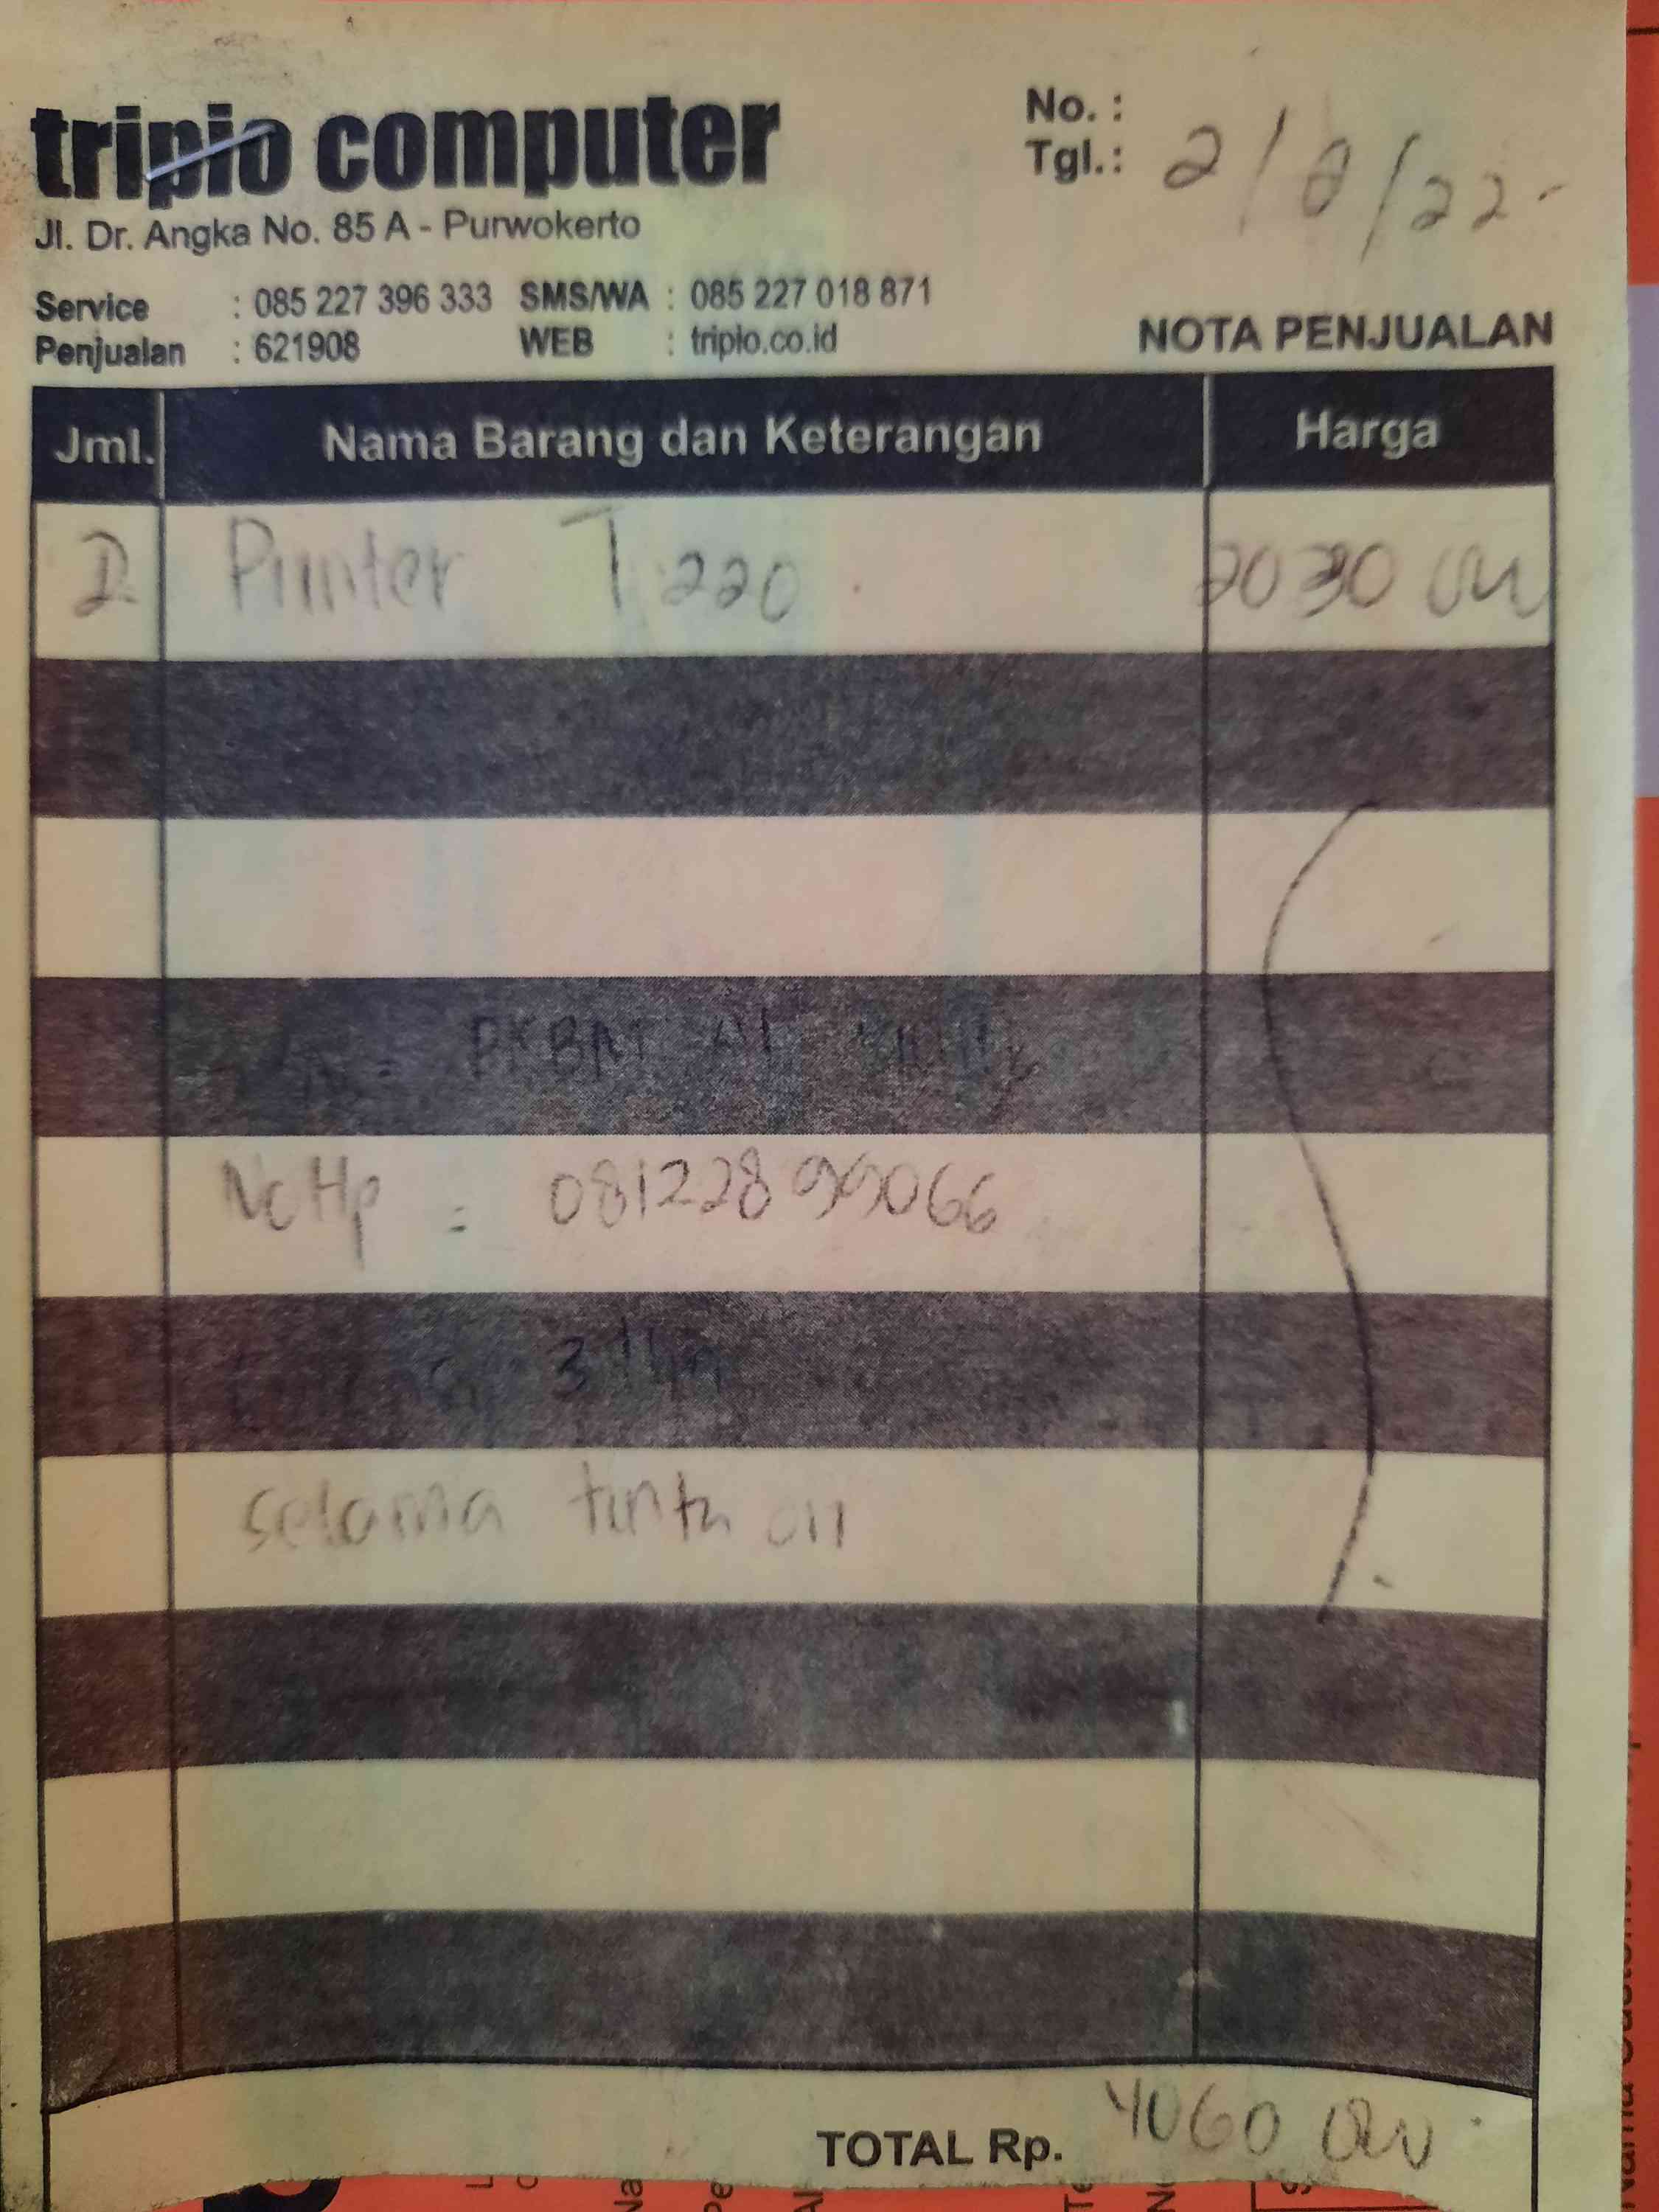 tripio computer
No. :
Tgl.: 2/8/22-
Jl. Dr. Angka No. 85 A - Purwokerto
Service : 085 227 396 333 SMS/WA : 085 227 018 871
Penjualan : 621908 WEB : tripio.co.id
NOTA PENJUALAN
Jml. Nama Barang dan Keterangan Harga
2 Printer T 220 2030 000
PKBM Al
No Hp = 081228 99066
3 thn
selama tinta ori
TOTAL Rp. 4060 000